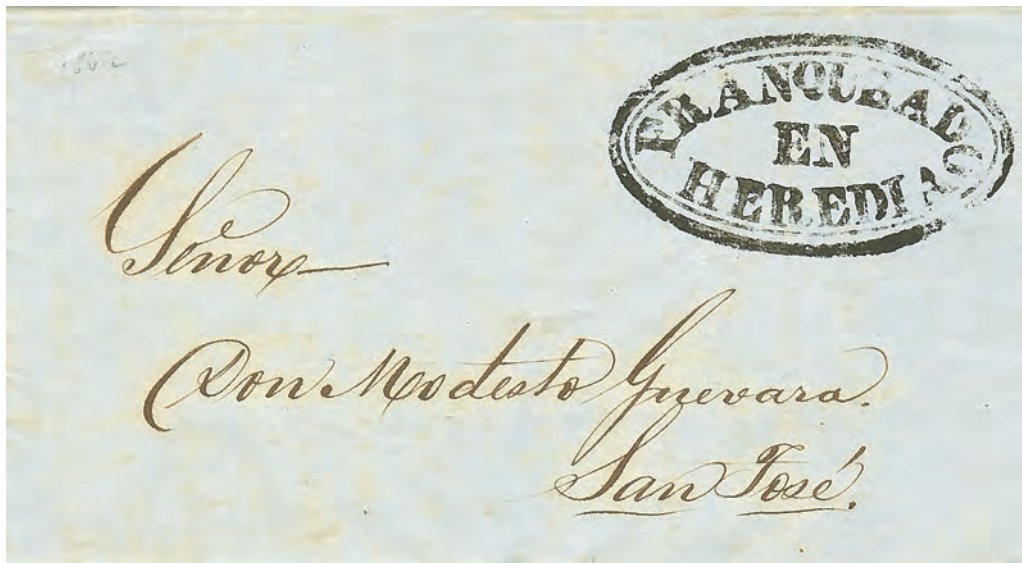 FRANQUEADO
EN
HEREDIA
Señor
Don Modesto Guevara.
San José.